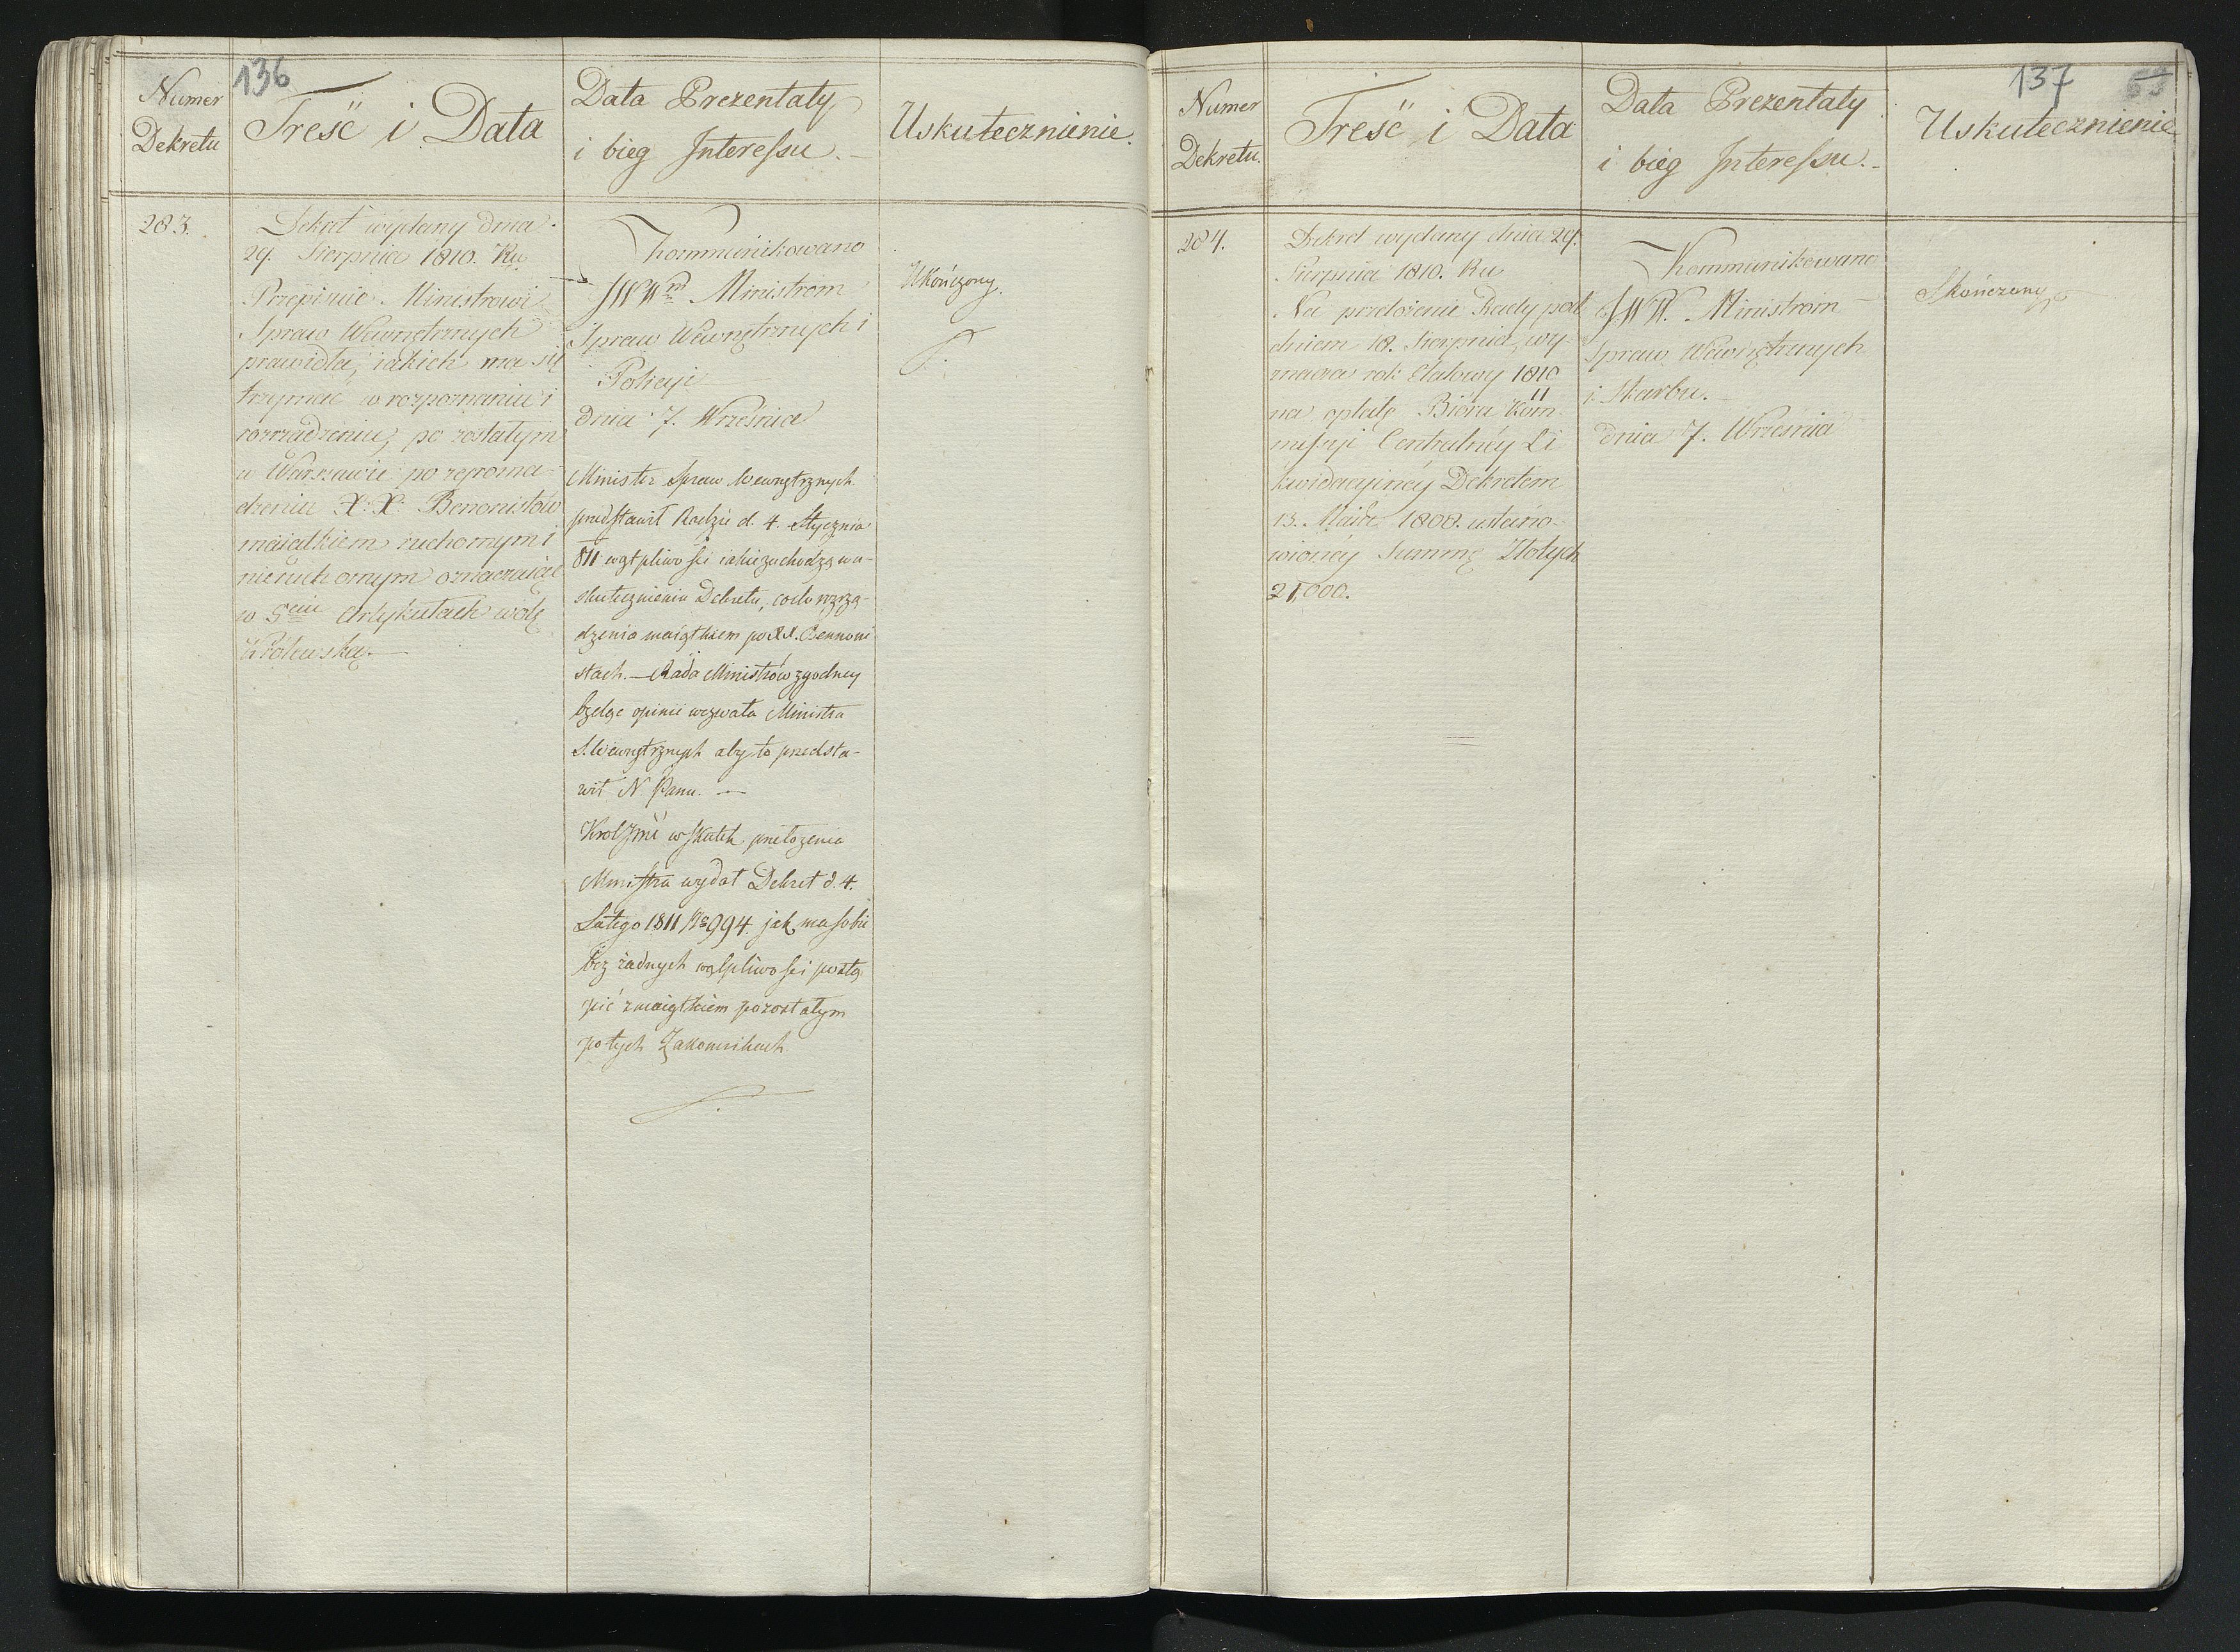 136
Numer
Dekretu
Treść i Data
Data Prezentaty
i bieg Interessu.
Uskutecznienie.
283.
Dekret wydany dnia
29. Sierpnia 1810. Ru
Przepisuie Ministrowi
Spraw Wewnętrznych
prawidła, iakich ma się
trzymać w rozpoznaniu i
rozrządzeniu, po zostałym
w Warszawie po zgroma-
dzeniu X. X. Benonistów
maiątkiem ruchomym i
nieruchomym oznaczaiąc
w 5ciu Artykułach wolę
Królewską.
Kommunikowano
JWWnm Ministrom
Spraw Wewnętrznych i
Policyi
dnia 7. Września
Minister Spraw Wewnętrznych
przedstawił Radzie d. 4. Stycznia
811 wątpliwości iakie zachodzą w u-
skutecznieniu Dekretu, co do rozrzą-
dzenia maiątkiem po XX. Bennoni
stach. — Rada Ministrów zgodney
będąc opinii wezwała Ministra
S. Wewnętrznych aby to przedsta-
wił N. Panu. —
Krol Jmć w skutek przełożenia
Ministra wydał Dekret d. 4.
Lutego 1811 No 994. jak ma sobie
bez żadnych wątpliwości postą
pić z maiątkiem pozostałym
po tych Zakonnikach
Ukończony.
137
69
Numer
Dekretu.
Treść i Data
Data Prezentaty
i bieg Interessu.
Uskutecznienie
284.
Dekret wydany dnia 29.
Sierpnia 1810. Ru
Na przełożenie Rady pod
dniem 18. Sierpnia, wy-
znacza rok Etatowy 1810/11
na opłatę Bióra Kom
missyi Centralnéy Li
kwidacyinéy Dekretem
13. Maia 1808. ustano-
wionéy Summę Złotych
21,000.
Kommunikowano
JWW. Ministrom
Spraw Wewnętrznych
i Skarbu.
dnia 7. Września
Skończony